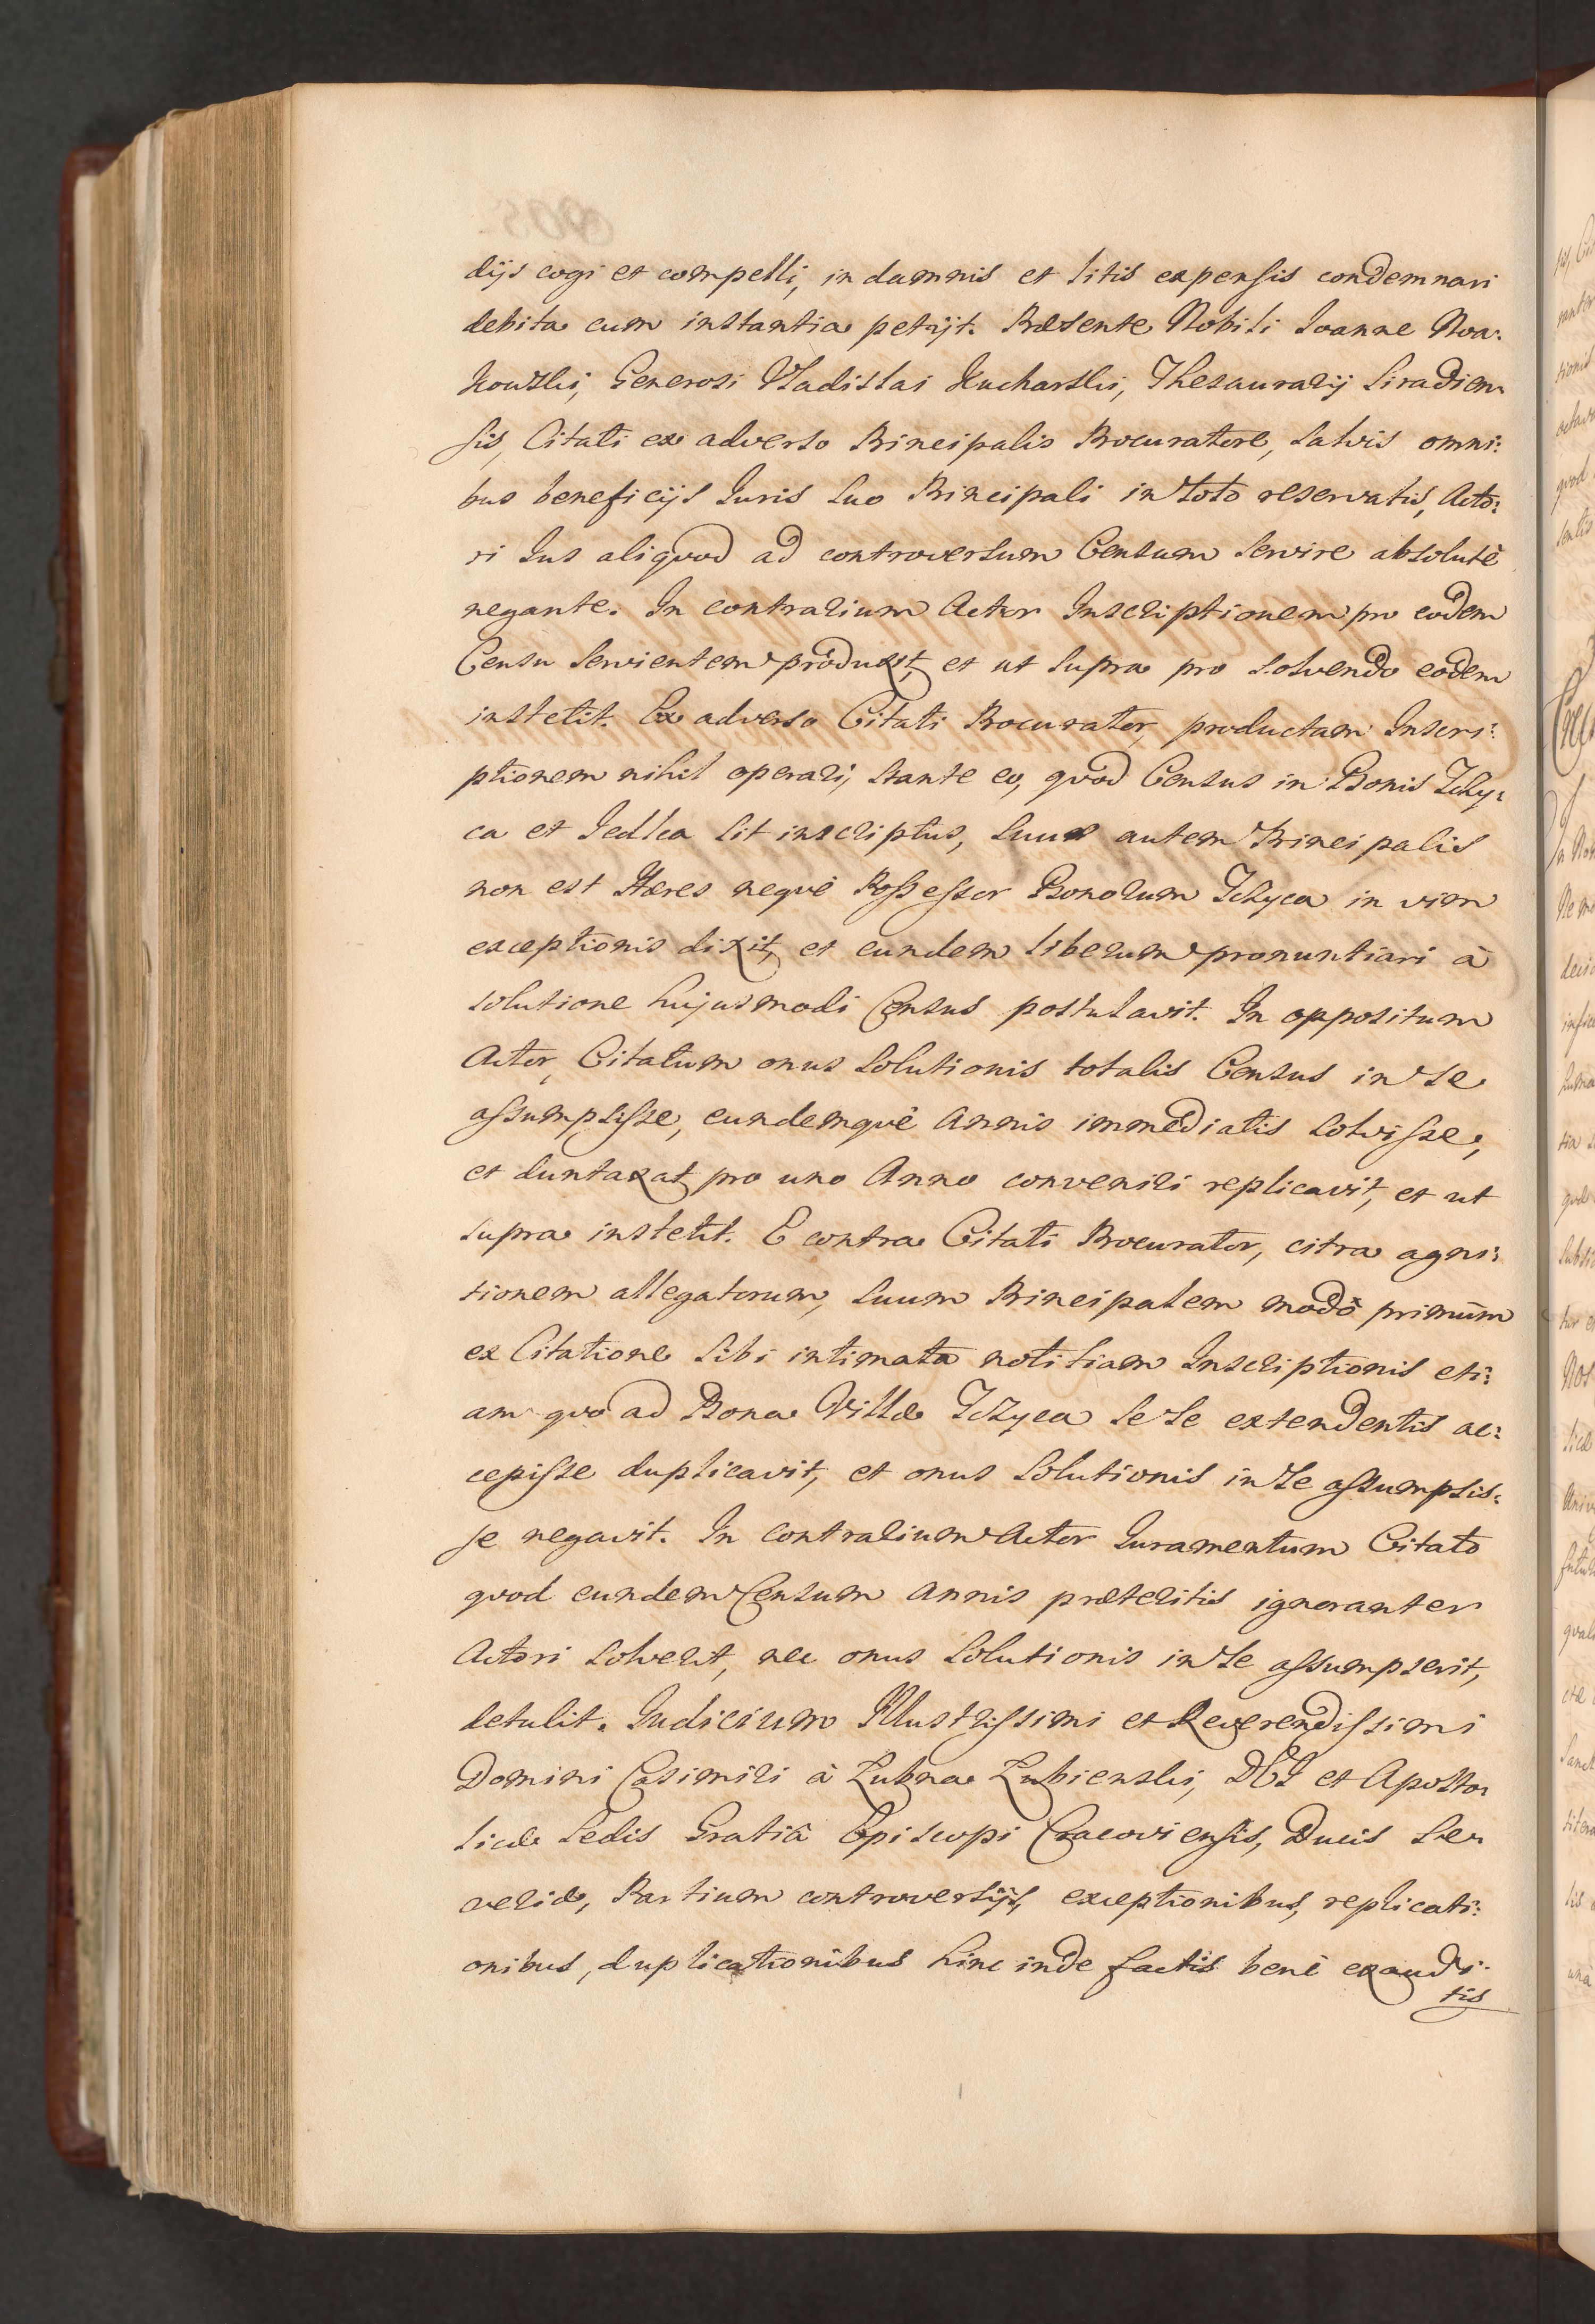 dijs cogi et compelli, in damnis et litis expensis condemnari
debita cum instantia petijt. Præsente Nobili Ioanne Noa-
kowski, Generosi Vladislai Kucharski, Thesaurarij Siradien-
sis, Citati ex adverso Principalis Procuratore, salvis omni:
bus beneficijs Iuris suo Principali in toto reservatis, Acto:
ri Ius aliquod ad controversum Censum servire absolutè
negante. In contrarium Actor Inscriptionem pro eodem
Censu servientem produxit, et ut supra pro solvendo eodem
institit. Ex adverso Citati Procurator, productam Inscri:
ptionem nihil operari, stante eo, quod Census in Bonis
ca et Jedlca sit inscriptus, suus autem Principalis
non est Hæres neque Possessor Bonorum Iczyca in vim
exceptionis dixit, et eundem liberum pronuntiari à
solutione hujusmodi Census postulavit. In oppositum
Actor, Citatum onus solutionis totalis Census in se
assumpsisse, eundemquè Annis immediatis solvisse,
et duntaxat pro uno Anno conveniri replicavit, et ut
supra institit. E contra Citati Procurator, citra agni:
tionem allegatorum, suum Principalem modò primùm
ex Citatione sibi intimata notitiam Inscriptionis eti:
am quo ad Bona Villæ Iczyca se se extendentis ac:
cepisse duplicavit, et onus solutionis in se assumpsis:
se negavit. In contrarium Actor Iuramentum Citato
quod eundem Censum annis præteritis ignoranter
Actori solverit, nec onus solutionis in se assumpserit,
detulit. Iudicium Illustrissimi et Reverendissimi
Domini Casimiri à Łubna Łubienski, DEI et Aposto-
licæ Sedis Gratiâ Episcopi Cracoviensis, Ducis Se-
veriæ, Partium controversijs, exceptionibus, replicati:
onibus, duplicationibus hinc inde factis benè exaudi-
tis